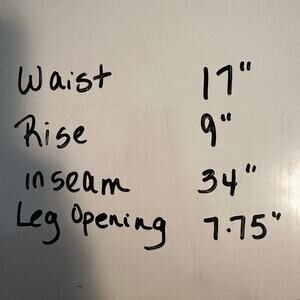 Waist 17"
Rise 9"
inseam 34"
Leg Opening 7.75"